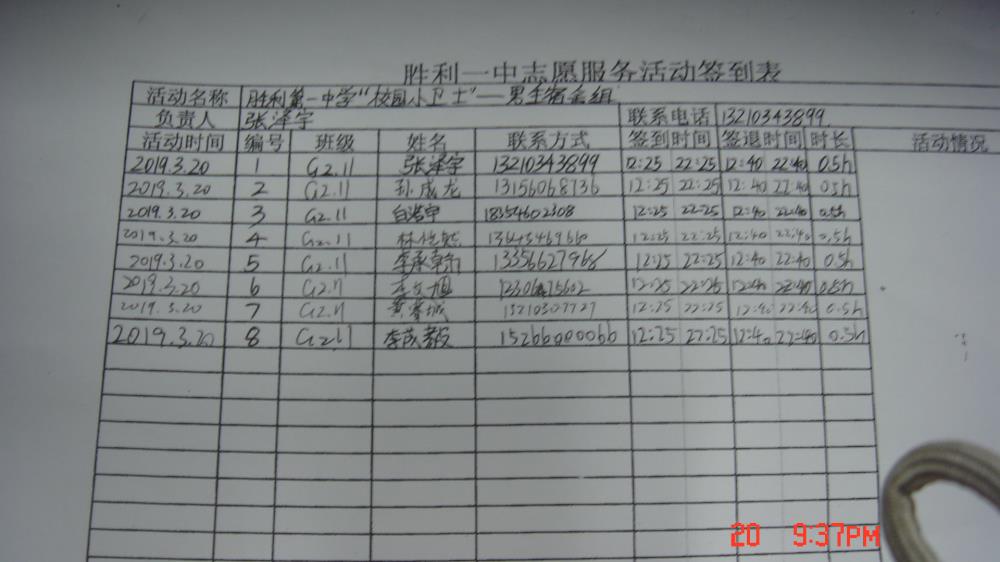 胜利一中志愿服务活动签到表
活动名称 胜利第一中学“校园小卫士”—男生宿舍组
负责人 张泽宇 联系电话 13210343899
活动时间 编号 班级 姓名 联系方式 签到时间 签退时间 时长 活动情况
2019.3.20 1 G2.11 张泽宇 13210343899 12:25 22:25 12:40 22:40 0.5h
2019.3.20 2 G2.11 孙成龙 13156068736 12:25 22:25 12:40 22:40 0.5h
2019.3.20 3 G2.11 18354602308 12:25 22:25 12:40 22:40 0.5h
2019.3.20 4 G2.11 12:25 22:25 12:40 22:40 0.5h
2019.3.20 5 G2.11 李承翰 13356627968 12:25 22:25 12:40 22:40 0.5h
2019.3.20 6 G2.11 12:25 22:25 12:40 22:40 0.5h
2019.3.20 7 G2.11 12:25 22:25 12:40 22:40 0.5h
2019.3.20 8 G2.11 李成毅 15266000066 12:25 22:25 12:40 22:40 0.5h
20 9:37PM